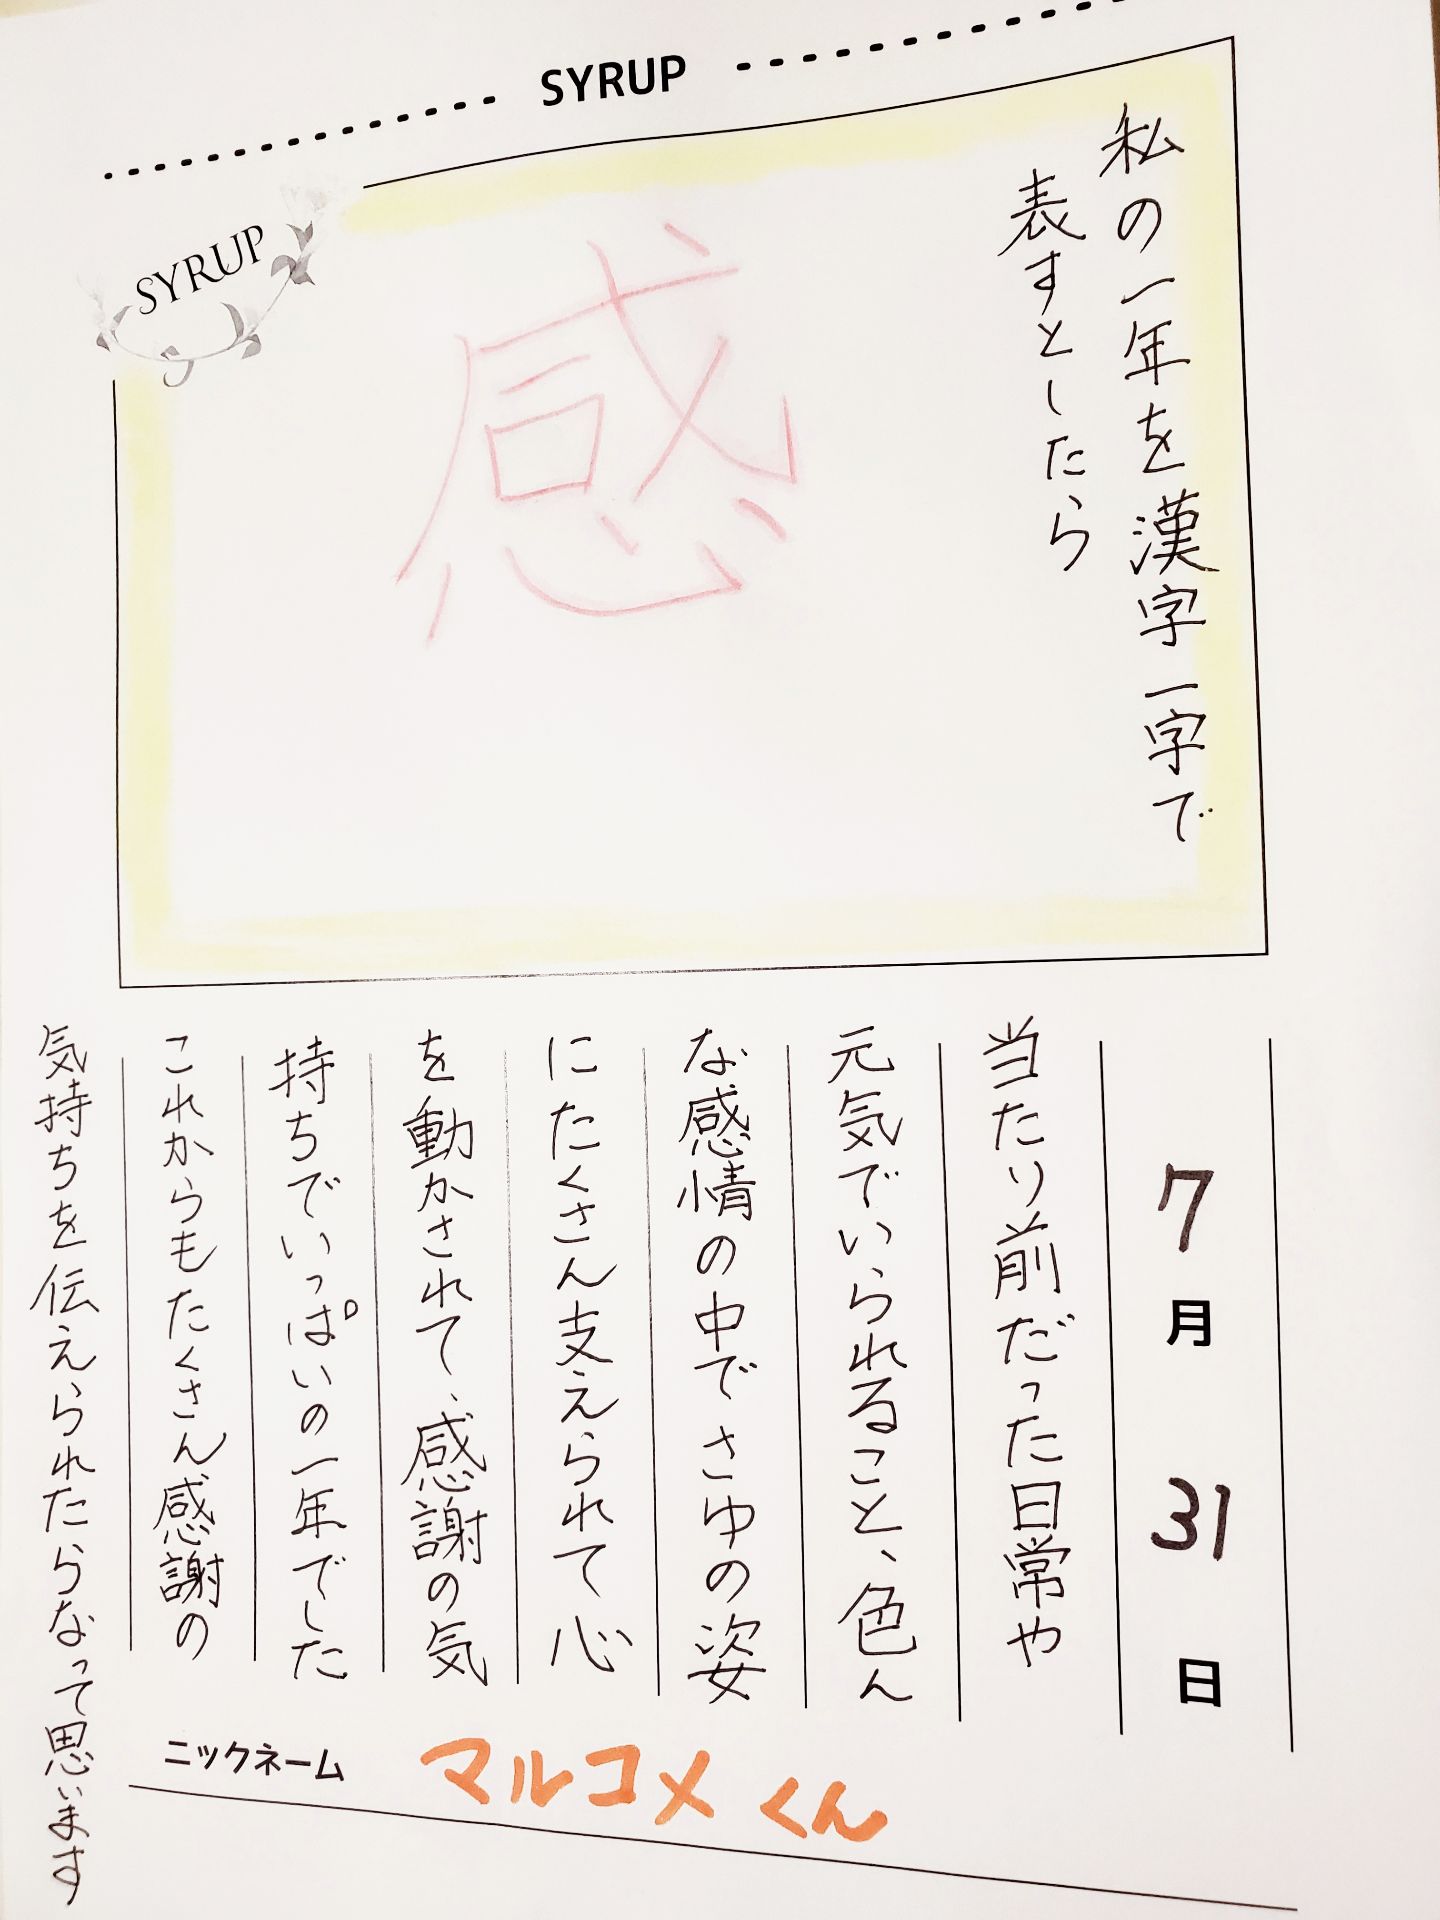 SYRUP
SYRUP
私の一年を漢字一字で
表すとしたら
感
7月31日
当たり前だった日常や
元気でいられること、色ん
な感情の中でさゆの姿
にたくさん支えられて心
を動かされて、感謝の気
持ちでいっぱいの一年でした
これからもたくさん感謝の
気持ちを伝えられたらなって思います
ニックネーム マルコメくん